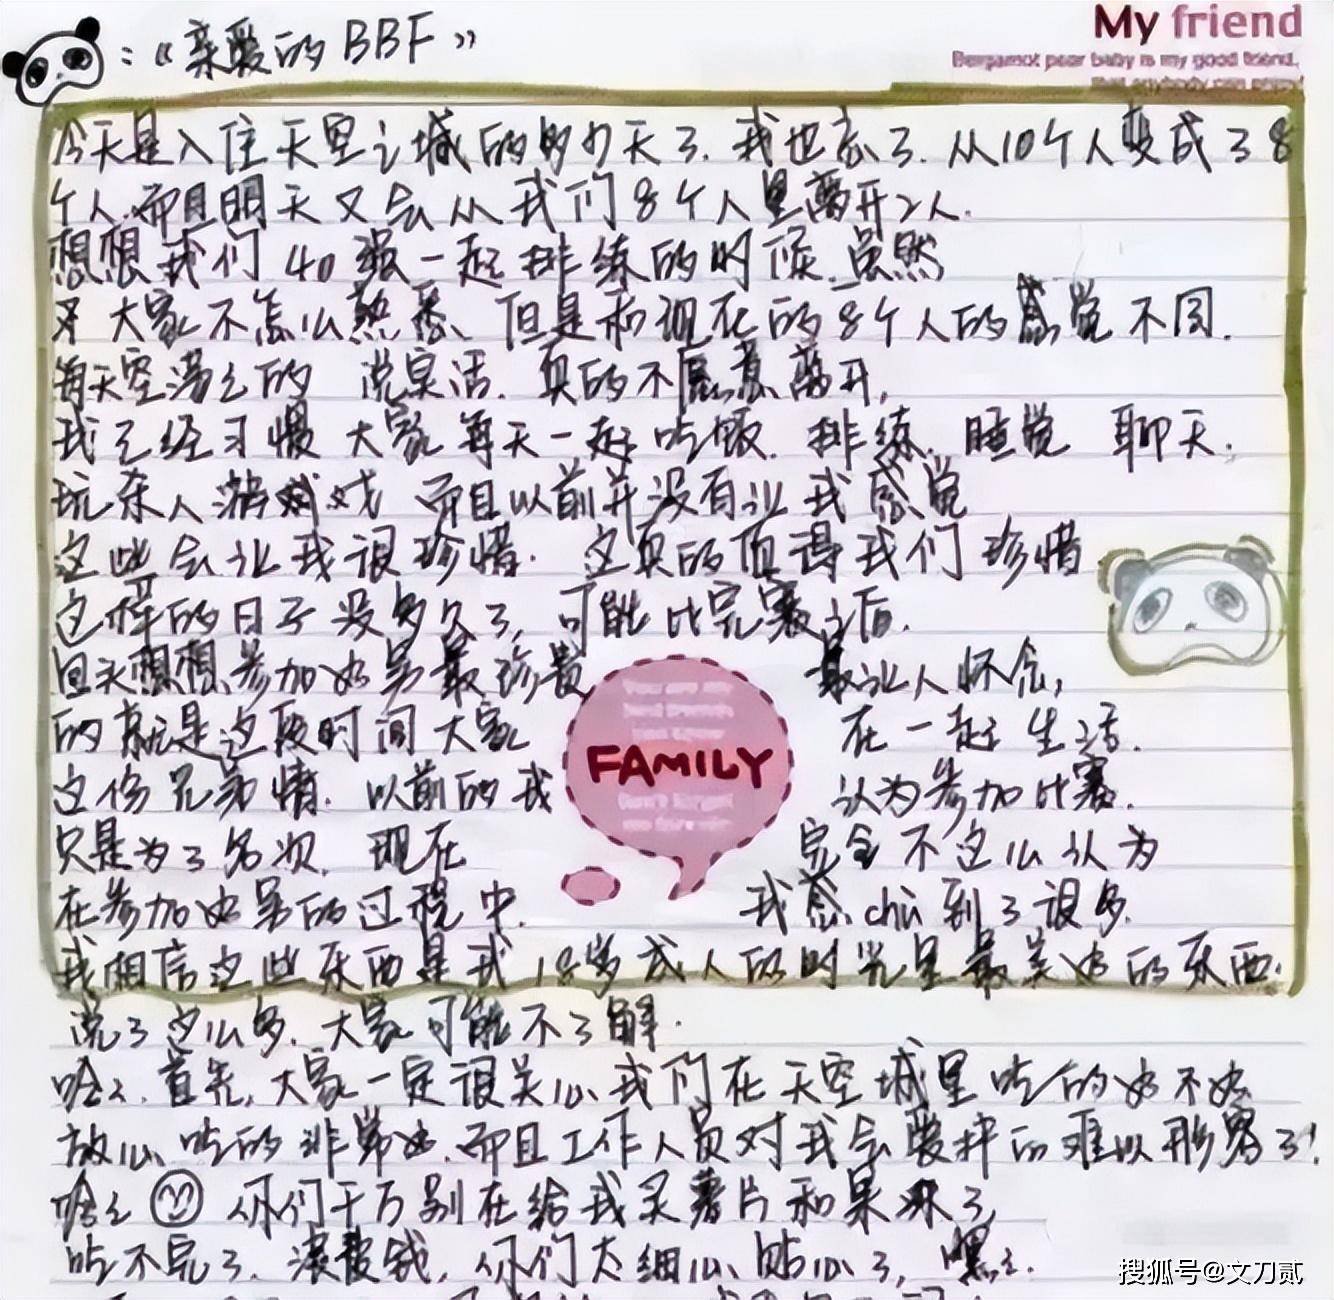 My friend
Bergamot pear baby is my good friend,
：《亲爱的BBF》
今天是入住天空之城的第力天了，我也忘了，从10个人变成了8
个人，而且明天又会从我们8个人里离开2人.
想想我们40强一起排练的时候，虽然
大家不怎么熟悉、但是和现在的8个人的感觉不同.
每天空荡之的 说実话，真的不愿意离开，
我已经习惯大家每天一起吃饭，排练，睡觉 聊天.
玩杀人游戏 而且以前并没有让我感觉
这些会让我很珍惜. 这真的值得我们珍惜
这样的日子没多久了，可能比完赛之后.
回头想想参加好男最珍贵 最让人怀念,
的就是这段时间大家 在一起生活.
这份兄弟情. 以前的我 认为参加比赛.
只是为了名次，现在 完全不这么认为
在参加好男的过程中. 我感chù到了很多.
我相信这些东西是我18岁成人的时光里最美好的东西.
说了这么多，大家可能不了解.
哈之，首先，大家一定很关心、我们在天空城里吃的好不好
放心、吃的非常好，而且工作人员对我会照样的难以形容了!
哈之 你们千万别在给我买薯片和果冻了,
吃不完了，浪费钱，你们太细心、贴心了，嘿之.
You are my
best friends
FAMILY
Don't forget
搜狐号@文刀贰